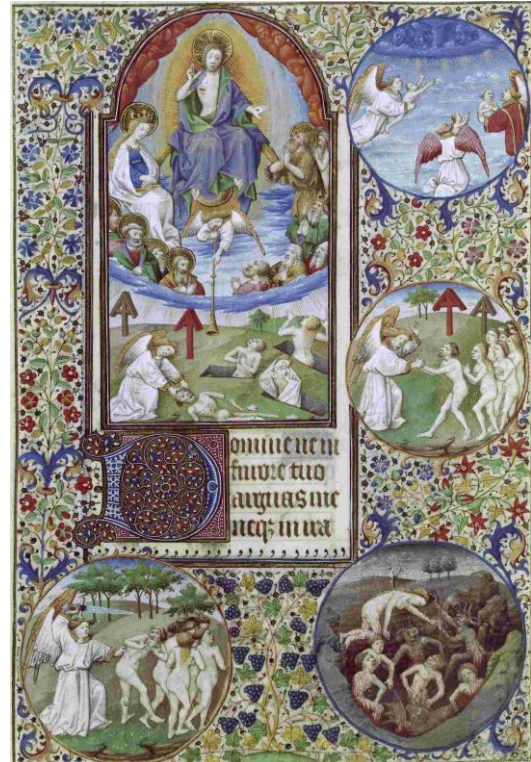 Domine ne in
furore tuo
arguas me
neqꝫ in ira